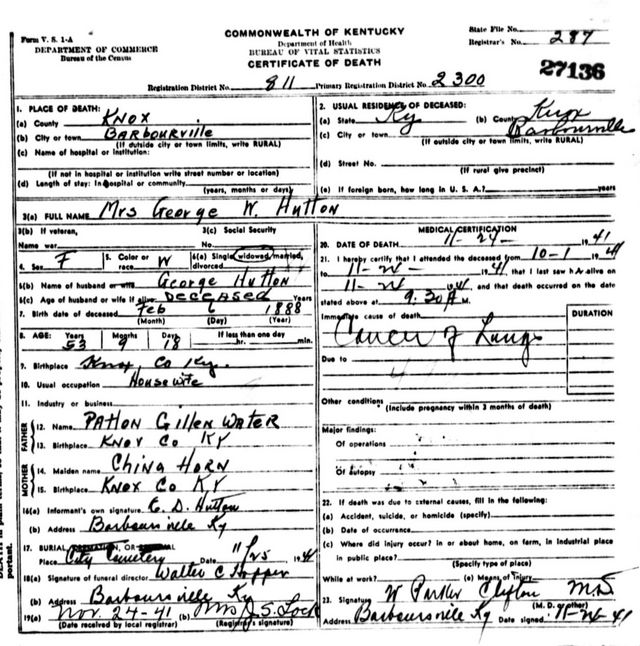 Form V. S. 1-A
DEPARTMENT OF COMMERCE
Bureau of the Census
COMMONWEALTH OF KENTUCKY
Department of Health
BUREAU OF VITAL STATISTICS
CERTIFICATE OF DEATH
State File No.
Registrar's No. 287
27136
Registration District No. 811 Primary Registration District No. 2300
1. PLACE OF DEATH:
(a) County KNOX
(b) City or town BARBOURVILLE
(If outside city or town limits, write RURAL)
(c) Name of hospital or institution:
(If not in hospital or institution write street number or location)
(d) Length of stay: In hospital or community
(years, months or days)
2. USUAL RESIDENCE OF DECEASED:
(a) State Ky (b) County Knox
(c) City or town Barbourville
(If outside city or town limits, write RURAL)
(d) Street No.
(If rural give precinct)
(e) If foreign born, how long in U. S. A.? years
3(a) FULL NAME Mrs George W. Hutton
3(b) If veteran,
Name war
3(c) Social Security
No.
4. Sex F
5. Color or
race W
6(a) Single, widowed, married,
divorced
6(b) Name of husband or wife George Hutton
6(c) Age of husband or wife if alive DECEASED Years
7. Birth date of deceased Feb 6 1888
(Month) (Day) (Year)
8. AGE: Years Months Days If less than one day
53 9 18 hr. min.
9. Birthplace Knox Co Ky.
10. Usual occupation Housewife
11. Industry or business
FATHER
12. Name PATTON GILLEN WATER
13. Birthplace KNOX CO KY
MOTHER
14. Maiden name CHINA HORN
15. Birthplace KNOX CO KY
16(a) Informant's own signature E. D. Hutton
(b) Address Barboursville Ky
17. BURIAL, CREMATION, OR REMOVAL
Place City Cemetery Date 11/25 1941
18(a) Signature of funeral director Walter C Hopper
(b) Address Barboursville Ky
19(a) Nov. 24-41 (b) Mrs J. S. Lock
(Date received by local registrar) (Registrar's signature)
MEDICAL CERTIFICATION
20. DATE OF DEATH 11-24- 1941
21. I hereby certify that I attended the deceased from 10-1 1941
to 11-24- 1941, that I last saw her alive on
11-24- 1941, and that death occurred on the date
stated above at 9:30 A M.
Immediate cause of death
DURATION
Cancer of Lungs
Due to
Other conditions
(Include pregnancy within 3 months of death)
Major findings:
Of operations
Of autopsy
22. If death was due to external causes, fill in the following:
(a) Accident, suicide, or homicide (specify)
(b) Date of occurrence
(c) Where did injury occur? in or about home, on farm, in industrial place
in public place?
(Specify type of place)
While at work? (e) Means of Injury
23. Signature W Parker Clifton M.D
(M. D. or other)
Address Barboursville Ky Date signed 11-24-41
portant.